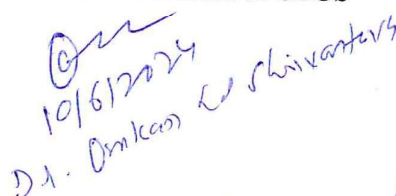 10/6/2024
Dr. Omkar Lal Shrivastava